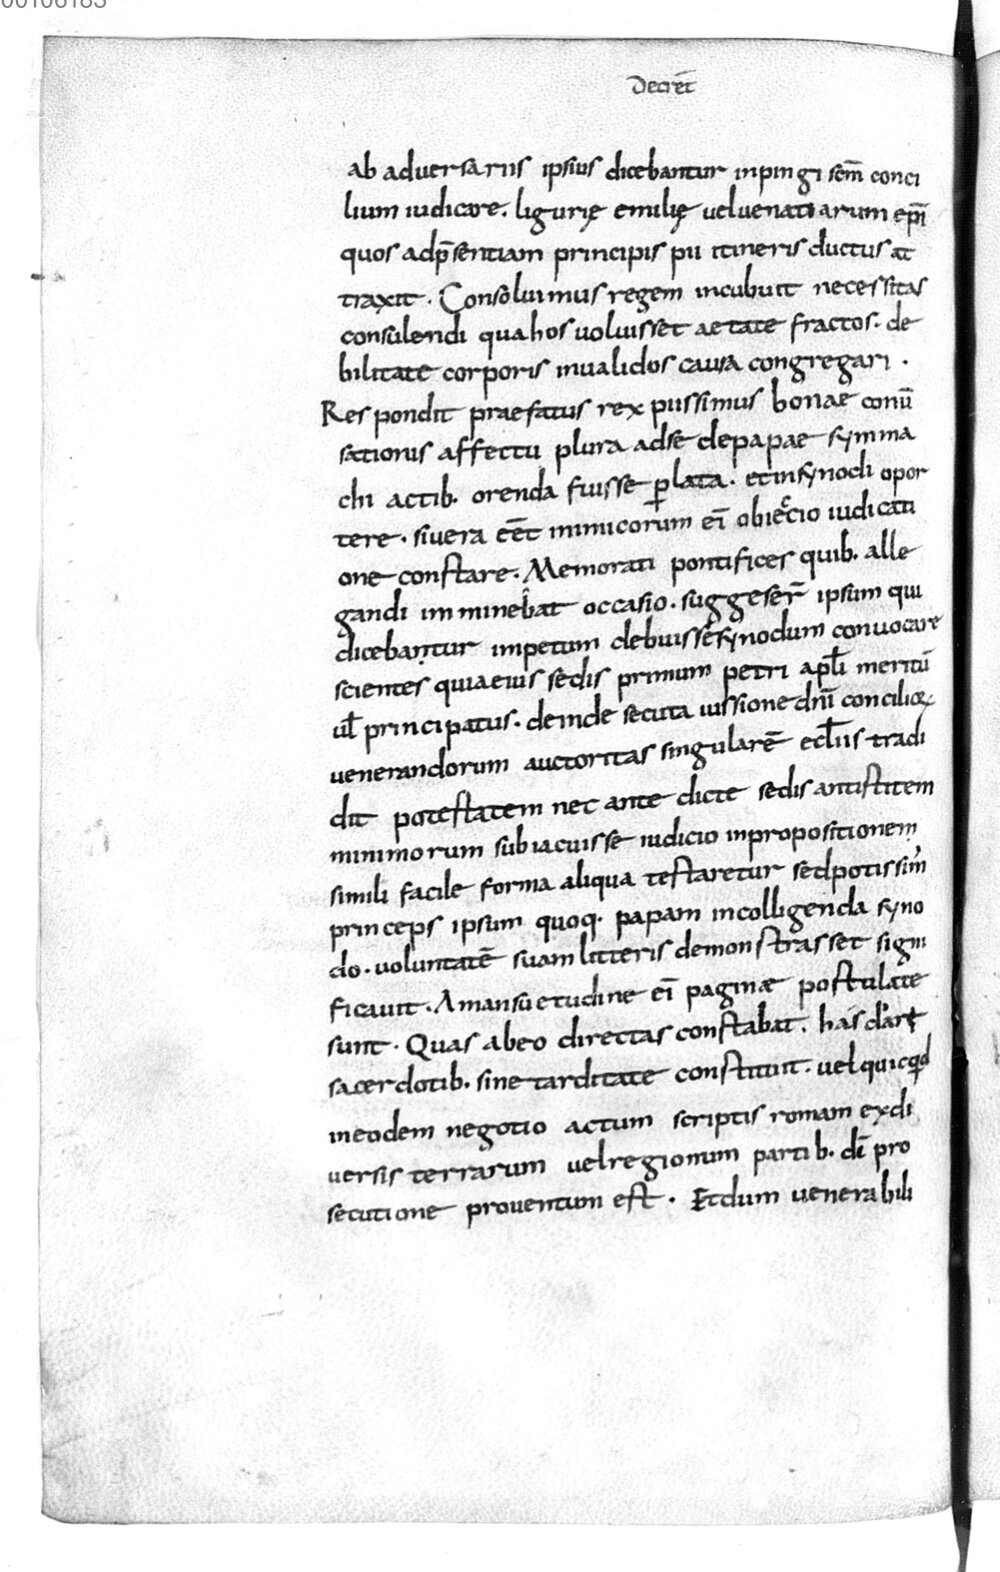 00106183
Decret̄
ab adversariis ipsius dicebantur inpingi scm̄ conci
lium iudicare. ligurię emilię vel venatiarum epī
quos adp̄sentiam principis pii itineris ductus at
traxit. Consoluimus regem incubuit necessitas
consulendi qua hos voluisset aetate fractos. de
bilitate corporis invalidos causa congregari.
Respondit praefatus rex piissimus bonae conū
sationis affectu plura adse de papae symma
chi actib. orenda fuisse ꝑlata. et in synodi opor
tere. si vera eēt inimicorum eī obiectio iudicati
one constare. Memorati pontifices quib. alle
gandi imminebat occasio. suggeser̄ ipsum qui
dicebantur impetum debuisse synodum convocare
scientes quia eius sedis primum petri apl̄i meritū
ul̄ principatus. deinde secuta iussione dnī concilioꝝ
venerandorum auctoritas singularē eccl̄iis tradi
dit potestatem nec ante dicte sedis antistitem
minimorum subiacuisse iudicio inpropositionem
simili facile forma aliqua testaretur sed potissim̄
princeps ipsum quoq. papam incolligenda syno
do. voluntatē suam litteris demonstrasset signi
ficavit. A mansuetudine eī paginae postulate
sunt. Quas abeo directas constabat. has dari
sacerdotib. sine tarditate constituit. vel quicqd
ineodem negotio actum scriptis romam exdi
versis terrarum vel regionum partib. dī pro
secutione proventum est. Et dum venerabili